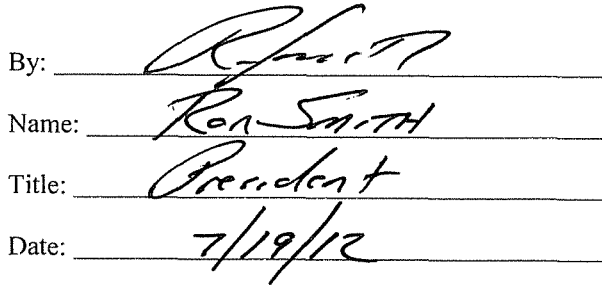 By: R. Smith
Name: Ron Smith
Title: President
Date: 7/19/12